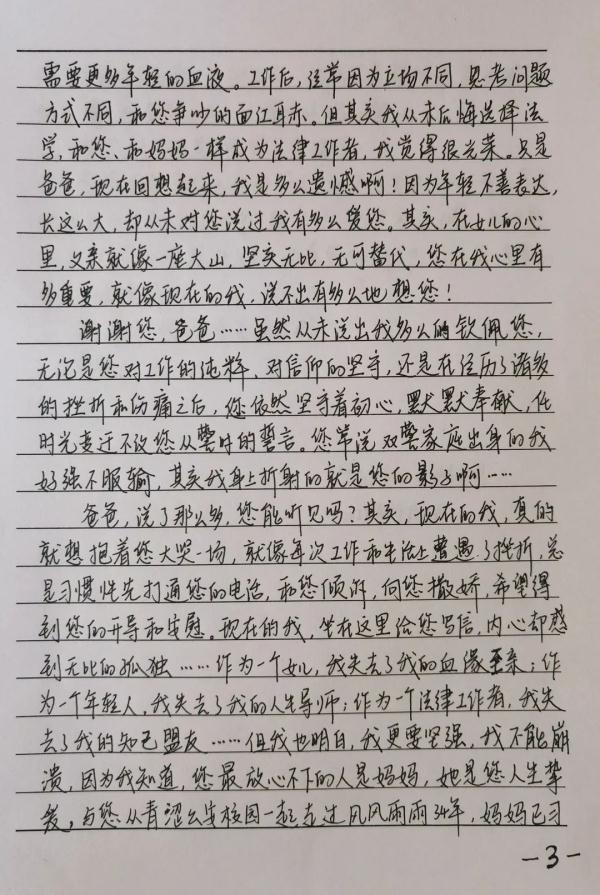 需要更多年轻的血液。工作后，经常因为立场不同，思考问题
方式不同，和您争吵的面红耳赤。但其实我从未后悔选择法
学，和您、和妈妈一样成为法律工作者，我觉得很光荣。只是
爸爸，现在回想起来，我是多么遗憾啊！因为年轻不善表达，
长这么大，却从未对您说过我有多么爱您。其实，在女儿的心
里，父亲就像一座大山，坚实无比，无可替代，您在我心里有
多重要，就像现在的我，说不出有多么地想您！
谢谢您，爸爸……虽然从未说出我多么的钦佩您，
无论是您对工作的纯粹，对信仰的坚守，还是在经历了诸多
的挫折和伤痛之后，您依然坚守着初心，默默奉献，任
时光变迁不改您从警时的誓言。您常说双警家庭出身的我
好强不服输，其实我身上折射的就是您的影子啊……
爸爸，说了那么多，您能听见吗？其实，现在的我，真的
就想抱着您大哭一场，就像每次工作和生活上遭遇了挫折，总
是习惯性先打通您的电话，和您倾诉，向您撒娇，希望得
到您的开导和安慰。现在的我，坐在这里给您写信，内心却感
到无比的孤独……作为一个女儿，我失去了我的血缘至亲；作
为一个年轻人，我失去了我的人生导师；作为一个法律工作者，我失
去了我的知己盟友……但我也明白，我更要坚强，我不能崩
溃，因为我知道，您最放心不下的人是妈妈，她是您人生挚
爱，与您从青涩公安校园一起走过风风雨雨34年，妈妈已习
-3-